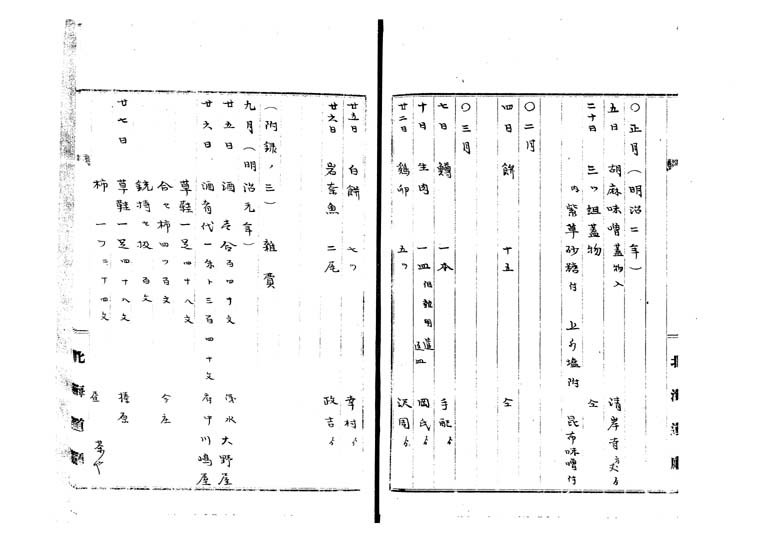 〇正月(明治二年)
五日 胡麻味噌蓋物入 清岸寺ゟ
二十日 三ツ組蓋物 仝
内 紫草砂糖付 塩附 昆布味噌付
〇二月
四日 餅 十五 仝
〇三月
七日 鱒 一本 手配ゟ
十日 生肉 一皿 岡氏ゟ
廿二日 鶏卵 五ツ 沢田ゟ
北海道庁
廿五日 白餅 七ツ 幸村ゟ
廿六日 岩奈魚 二尾 政吉ゟ
(附録ノ三) 雑費
九月(明治元年)
廿五日 酒 壱合百四十文 大野屋
廿六日 酒肴代 一朱ト三百四十文 中川嶋屋
草鞋一足四十八文
合セ柿四ツ百文 今庄
銭持セ扱 百文
廿七日 草鞋一足四十八文 橿原
柿 一ツ二十四文 茶や
北海道庁